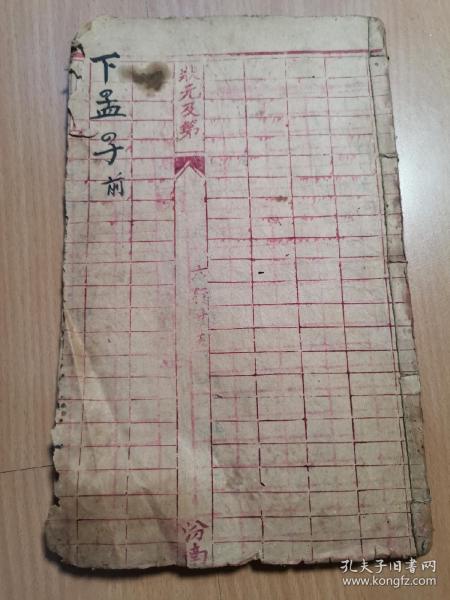 下孟子前
狀元及第
汾南
孔夫子旧书网
www.kongfz.com